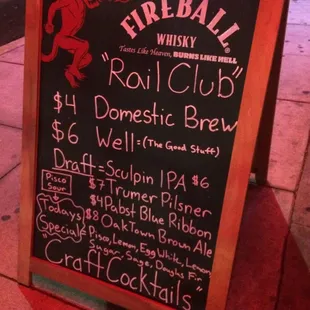 FIREBALL
WHISKY
Tastes Like Heaven, BURNS LIKE HELL
"Rail Club"
$4 Domestic Brew
$6 Well = (The Good Stuff)
Draft = Sculpin IPA $6
Pisco Sour
$7 Trumer Pilsner
$4 Pabst Blue Ribbon
Todays Special
$8 OakTown Brown Ale
= Pisco, Lemon, Egg White, Lemon
Sugar, Sage, Douglas Fir
"Craft Cocktails"